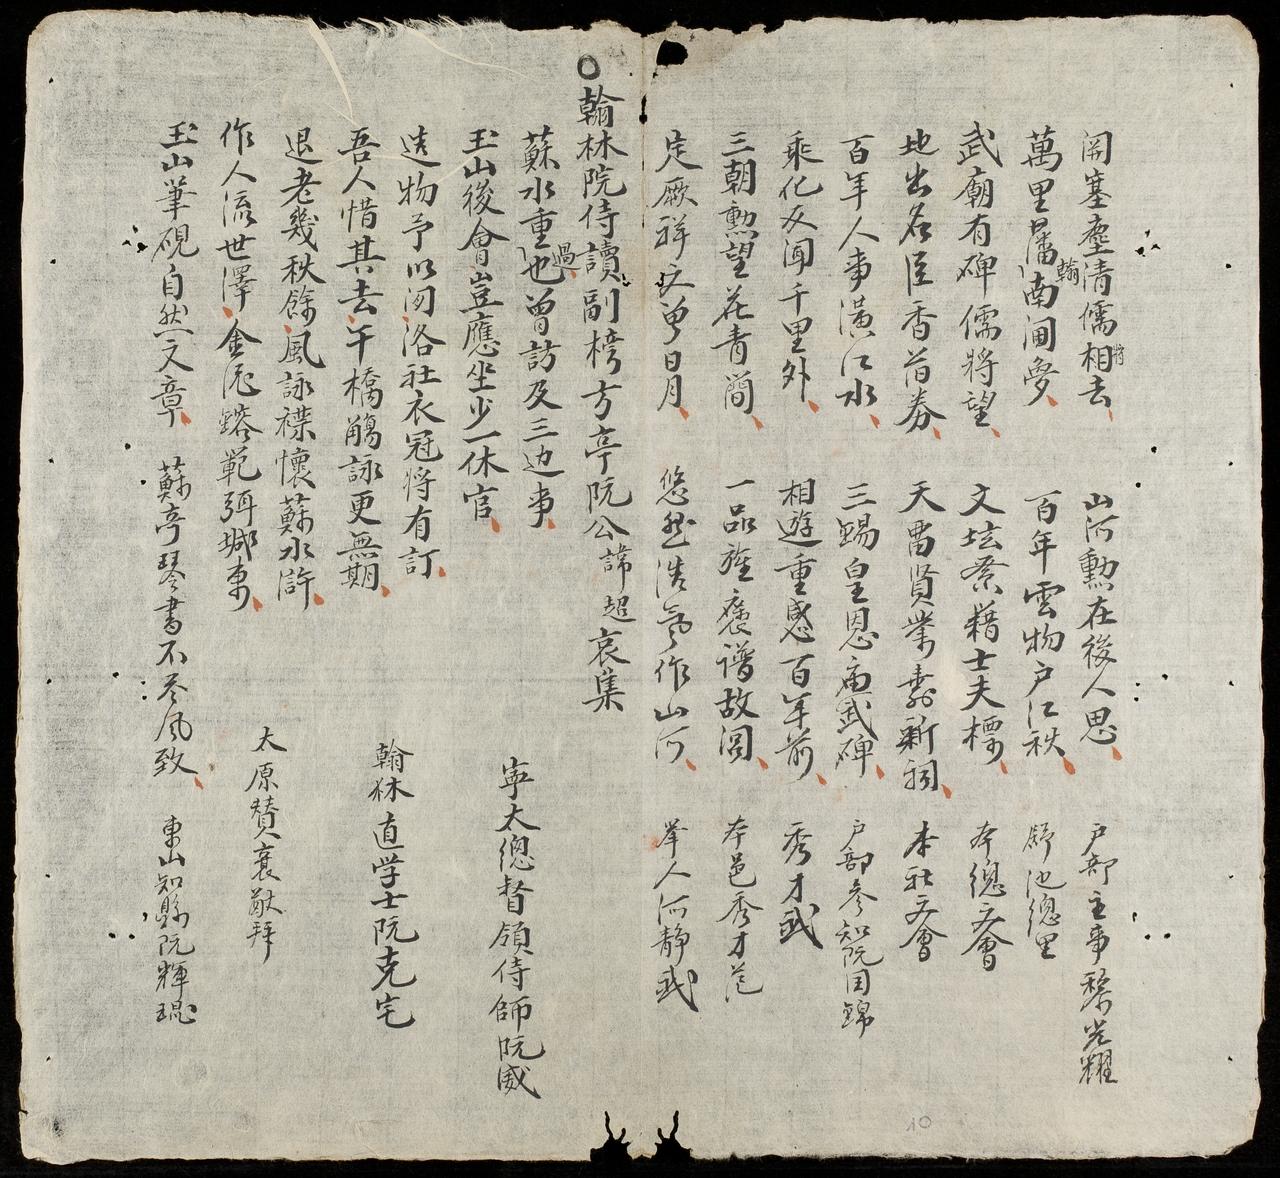 開塞塵清儒相將去 山河勲在後人思 戸部主事黎光耀
萬里藩翰南圃夢 百年雲物戸江秋 舒池總里
武廟有碑儒將望 文坛祭藉士夫標 本總文會
地出名臣香芳 天畱賢業新祠 本社文會
百年人事潢江水 三錫皇恩廟武碑 戸部參知阮国錦
乘化又闻千里外 相遊重感百年前 秀才武
三朝勲望花青簡 一品旌褒譜故閭 本邑秀才范
定厥祥又曾日月 悠然浩氣作山河 举人阮静武
○翰林院侍讀副榜方亭阮公諱超哀集
蘇水重過也曾訪及三边事
玉山後會豈應坐少一休官 寧太總督領侍師阮威
造物予以洄洛社衣冠將有訂
吾人惜其去午橋觴詠更無期 翰林直学士阮克宅
退老幾秋餘風詠襟懷蘇水滸
作人流世澤金泥鎔範珥城東 太原賛襄猷拜
玉山筆硯自然文章 蘇亭琴書不尽风致 東山知縣阮輝琨